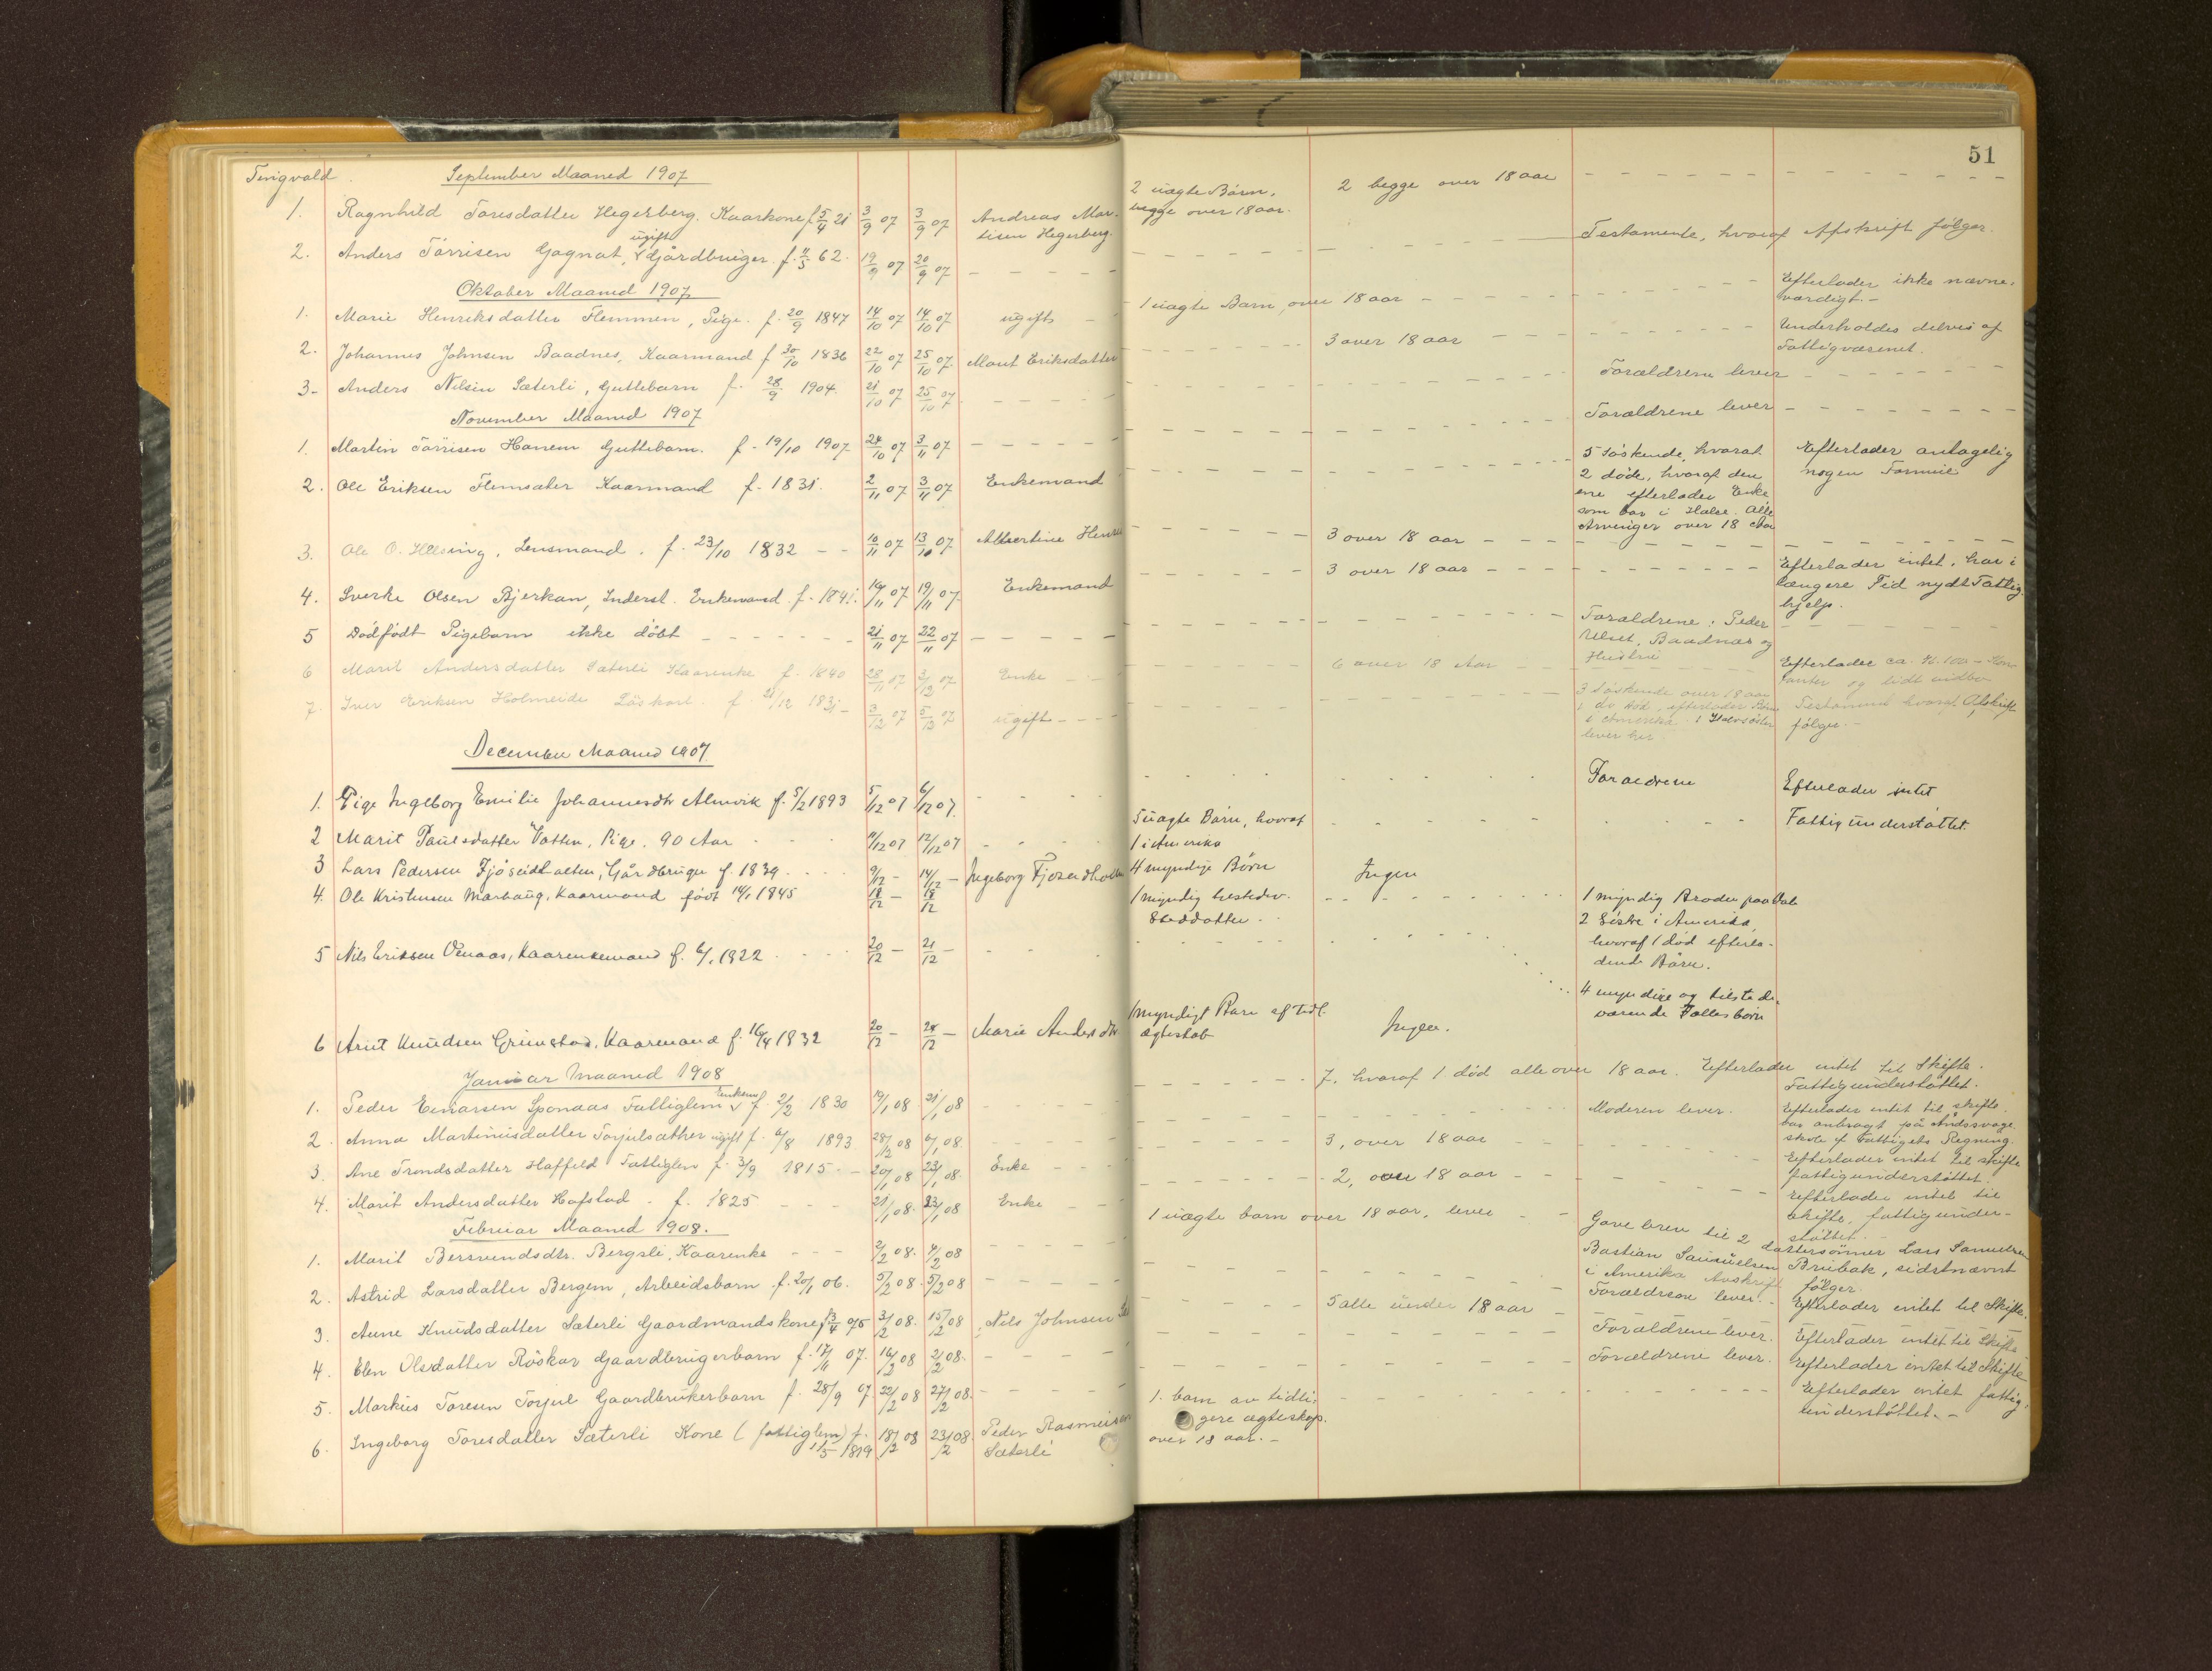 51
Tingvold September Maaned 1907
1. Ragnhild Toresdatter Hegerberg, Kaarkone f 5/4 21 3/9 07 3/9 07 Andreas Mar-
tisen Hegerberg. 2 uægte Børn, begge over 18 aar. 2 begge over 18 aar
ugift
2. Anders Törrisen Gagnat, Gårdbruger. f. 62. 19/9 07 20/9 07 Testamente, hvoraf Afskrift følger.
Oktober Maaned 1907
1. Marie Henriksdatter Flemmen, Pige. f. 20/9 1847 14/10 07 14/10 07 ugift 1 uægte Barn, over 18 aar Efterlader ikke nævne-
værdigt.-
2. Johannes Johnsen Baadnes, Kaarmand f 30/10 1836 22/10 07 25/10 07 Marit Eriksdatter 3 over 18 aar Underholdes delvis af
Fattigvæsenet.
3- Anders Nilsen Sæterli, Guttebarn f. 28/9 1904. 21/10 07 25/10 07. Forældrene lever
November Maaned 1907
1. Martin Törrisen Hanem Guttebarn. f- 19/10 1907 24/10 07 3/11 07 Forældrene lever
2. Ole Eriksen Flemsæter Kaarmand f- 1831. 2/11 07 3/11 07 Enkemand 5 Söskende, hvorat Efterlader antagelig
2 döde, hvoraf den nogen Formue
ene efterlader Enke
som bor i Halse. Alle
Arvinger over 18 Aar
3. Ole O. Helsing, Lensmand. f. 23/10 1832 10/11 07 13/10 07 Albertine 3 over 18 aar
4. Sverke Olsen Bjerkan, Inderst. Enkemand f. 1841. 16/11 07 19/11 07 Enkemand 3 over 18 aar Efterlader intet, har i
længere Tid nydt Fattig-
hjelp.
5 Dödfödt Pigebarn ikke döbt 21/11 07 22/11 07 Forældrene: Peder
Ulset, Baadnæs og
Hustru
6 Marit Andersdatter Sæterli Kaarenke f. 1840 28/11 07 3/12 07 Enke 6 over 18 Aar Efterlader ca. Kr. 100 - Kon-
tanter og lidt indbo
7. Iver Eriksen Holmeide Löskarl. f 21/12 1831- 3/12 07 5/12 07 ugift 3 Söskende over 18 aar Testament hvoraf Afskrift
1 do död, efterlader Börn følger.-
i Amerika. 1 Halvsöster
lever her
December Maaned 1907.
1. Pige Ingeborg Emilie Johannesdtr Almvik f. 5/2 1893 5/12 07 6/12 07. Foraeldrene Efterlader intet
2 Marit Paulsdatter Vatten, Pige. 90 Aar 11/12 07 12/12 07 5 uægte Børn, hvoraf Fattigunderstöttet.
1 i Amerika
3 Lars Pedersen Fjöseidholten, Gårdbruger f. 1839 9/12 - 14/12 - Ingeborg 4 myndige Børn Ingen
4. Ole Kristensen Marhaug, Kaarmand født 14/1 1845 18/12 - 18/12 1 myndig tilstedev. 1 myndig Broder paa
Steddatter 2 Søstre i Amerika,
hvoraf 1 død efterla-
dende Børn.
5 Nils Eriksen Venaas, Kaarenkemand f. 6/1 1822 20/12 - 21/12 - 4 myndige og tilstede-
værende Fællesbörn
6 Arnt Knudsen Grimstad, Kaarmand f. 16/4 1832 20/12 - 24/12 - Marie Andersdtr 1 myndigt Barn af tidl. Ingen.
ægteskab
Januar Maaned 1908
1. Peder Einarsen Sponaas Fattiglem Enkem. f. 2/2 1830 19/1 08 21/1 08 7, hvoraf 1 död alle over 18 aar. Efterlader intet til Skifte.
Fattigunderstöttet.
2. Anna Martinusdatter Torjulsæther ugift f. 6/8 1893. 28/12 08 6/1 08. Moderen lever. Efterlader intet til skifte.
bar anbragt på Åndssvage-
skole f. Fattigets Regning.
3. Ane Trondsdatter Haffeld Fattiglem f. 3/9 1815 20/1 08 23/1 08. Enke 3, over 18 aar Efterlader intet til skifte
fattigunderstöttet.
4. Marit Andersdatter Hofstad. f. 1825 21/1 08. 23/1 08 Enke 2, over 18 aar Efterlader intet til
skifte, fattigunder-
stöttet.
Februar Maaned 1908.
1. Marit Bersvendsdtr. Bergsli, Kaarenke 2/2 08. 4/2 08 1 uægte barn over 18 aar, lever Gavebrev til 2 dattersönner Lars Samuelsen
Bastian Samuelsen Brubak, sidstnævnt
i Amerika Avskrift følger.
2. Astrid Larsdatter Bergem, Arbeidsbarn f. 20/1 06. 5/2 08. 5/2 08 Forældrene lever. Efterlader intet til Skifte.
3. Aune Knudsdatter Sæterli Gaardmandskone f 13/4 75 3/2 08. 15/2 08 Nils Johnsen 5 alle under 18 aar
4. Elen Olsdatter Röskar Gaardbrugerbarn f. 17/11 07. 16/2 08 21/2 08. Forældrene lever. Efterlader intet til Skifte
5. Markus Toresen Torjul Gaardbrukerbarn f. 28/9 07 22/2 08 27/2 08. Forældrene lever. Efterlader intet til Skifte
6. Ingeborg Toresdatter Sæterli Kone (fattiglem) f. 11/5 1819 18/2 08 23/2 08. Peder Rasmusen
Sæterli 1. barn av tidli-
gere ægteskap.
over 18 aar.- Efterlader intet fattig-
understöttet.-